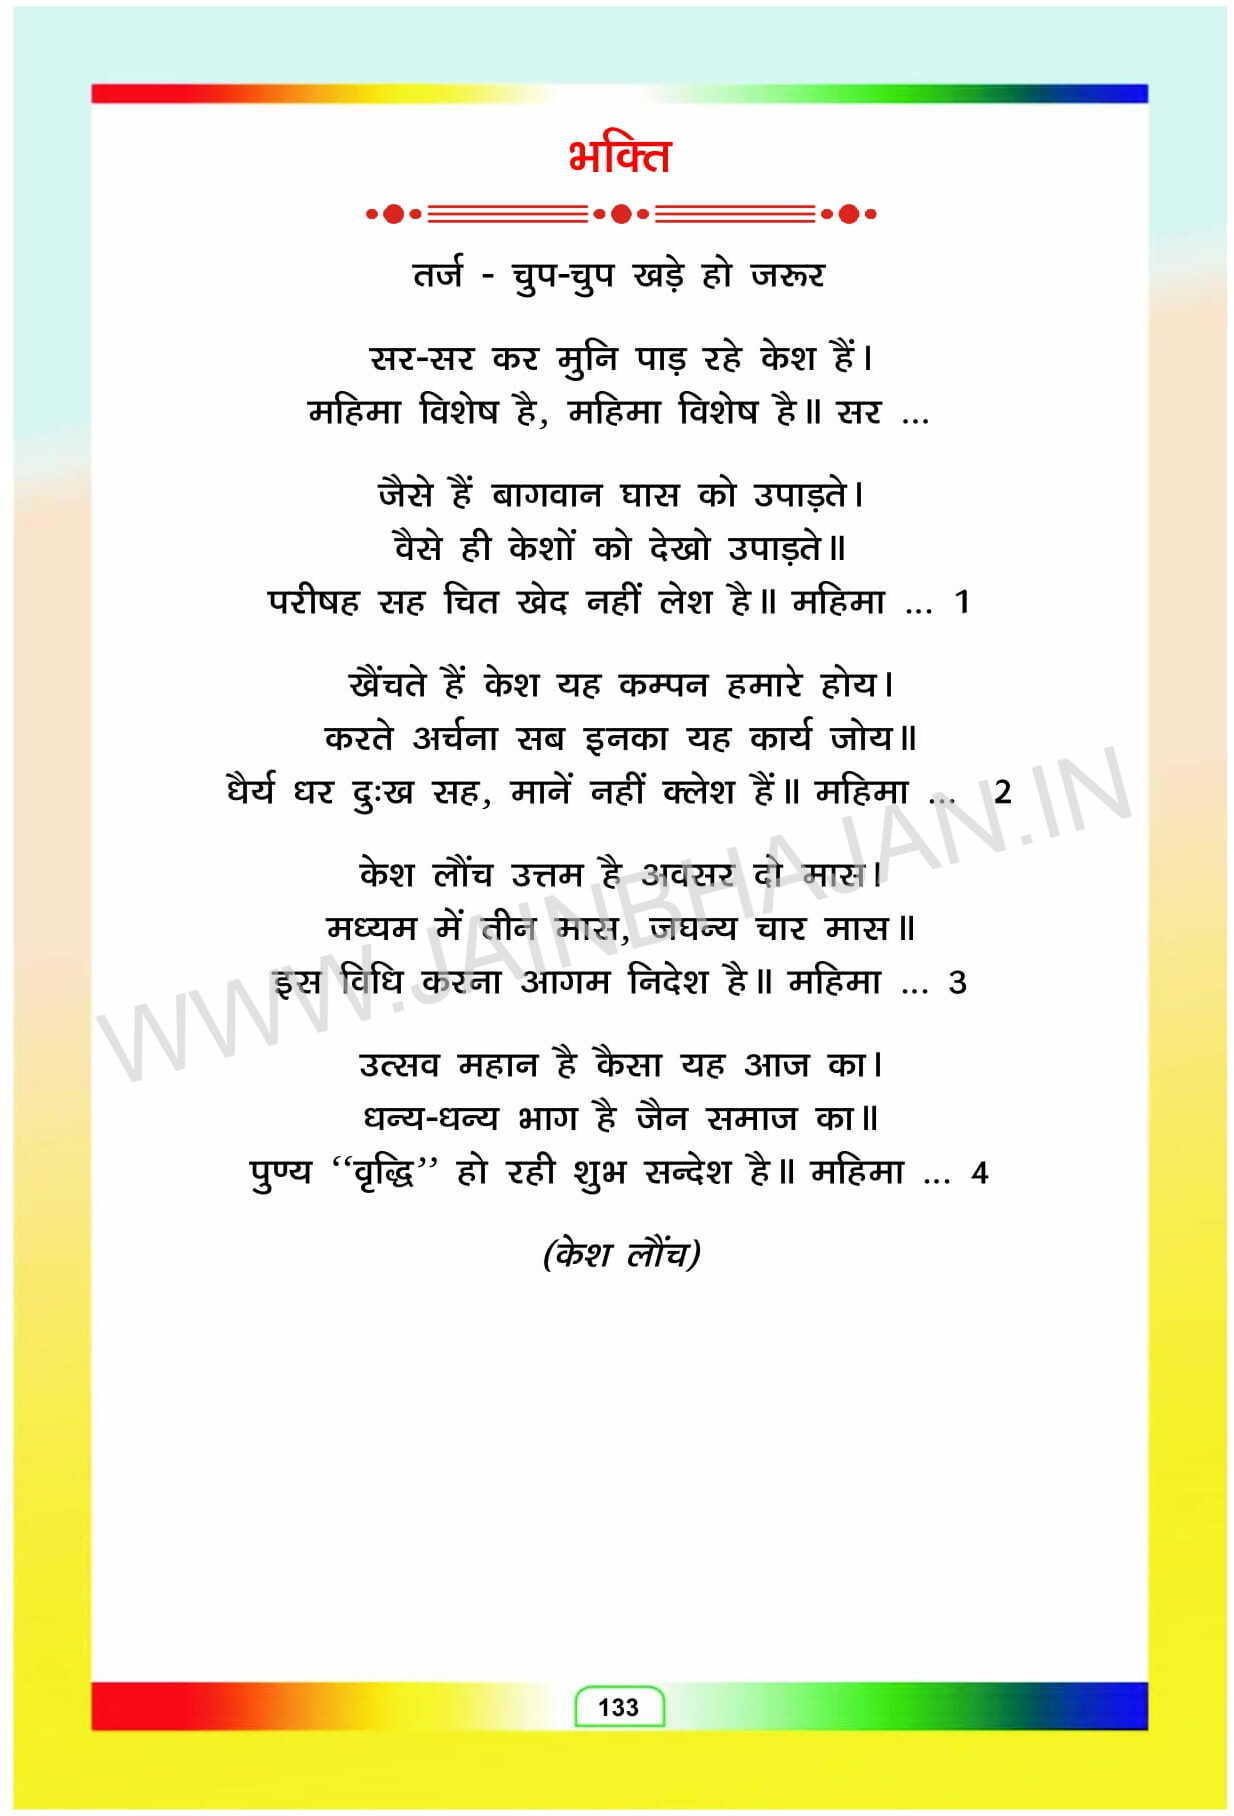 भक्ति
तर्ज - चुप-चुप खड़े हो जरूर
सर-सर कर मुनि पाड़ रहे केश हैं।
महिमा विशेष है, महिमा विशेष है॥ सर ...
जैसे हैं बागवान घास को उपाड़ते।
वैसे ही केशों को देखो उपाड़ते॥
परीषह सह चित खेद नहीं लेश है॥ महिमा ... 1
खैंचते हैं केश यह कम्पन हमारे होय।
करते अर्चना सब इनका यह कार्य जोय॥
धैर्य धर दुःख सह, मानें नहीं क्लेश हैं॥ महिमा ... 2
केश लौंच उत्तम है अवसर दो मास।
मध्यम में तीन मास, जघन्य चार मास॥
इस विधि करना आगम निदेश है॥ महिमा ... 3
उत्सव महान है कैसा यह आज का।
धन्य-धन्य भाग है जैन समाज का॥
पुण्य ‘‘वृद्धि’’ हो रही शुभ सन्देश है॥ महिमा ... 4
(केश लौंच)
133
WWW.JAINBHAJAN.IN